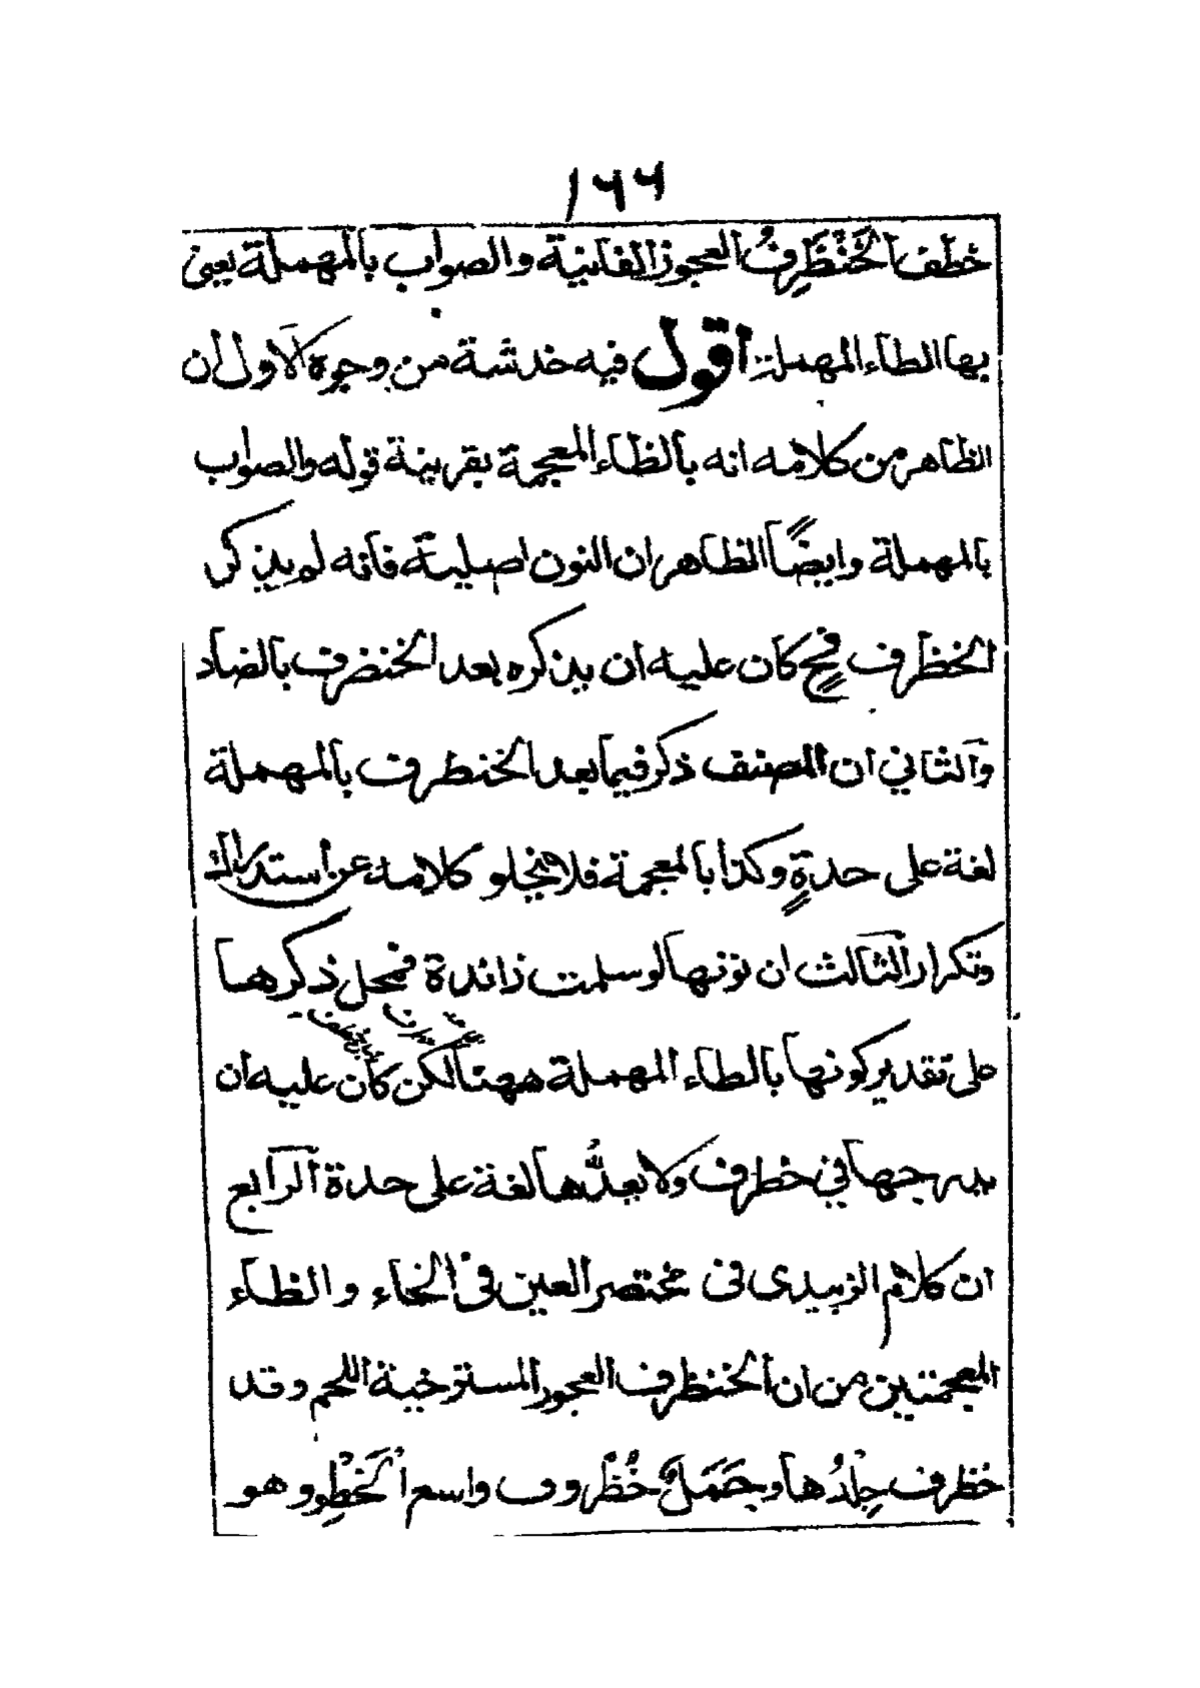 ١٦٦
خطف الخَنْظَرِفُ العجوز الفانية والصواب بالمهملة يعنى
بها الطاء المهملة اقول فيه خدشة من وجوه الاول ان
الظاهر من كلامه انه بالظاء المعجمة بقرينة قوله والصواب
بالمهملة وايضًا الظاهر ان النون اصلية فانه لم يذكر
الخظرف فح كان عليه ان يذكره بعد الخنضرف بالضاد
والثاني ان المصنف ذكر فيما بعد الخنطرف بالمهملة
لغة على حدةٍ وكذا بالمعجمة فلا يخلو كلامه عن استدراك
وتكرار الثالث ان نونها لو سلمت زائدة فمحل ذكرها
على تقدير كونها بالطاء المهملة ههنا لكن كان عليه ان
يدرجها في خطرف ولا يعدُّها لغة على حدة الرابع
ان كلام الزبيدى فى مختصر العين فى الخاء والظاء
المعجمتين من ان الخنظرف العجوز المسترخية اللحم وقد
خُظرف جِلدُها وجَمَلٌ خُظْروف واسع الخَطْوِ وهو